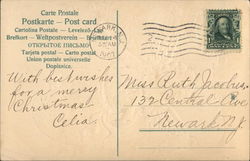 Carte Postale
Postkarte - Post card
Cartolina Postale - Levelező-Lap
Brefkort - Weltpostverein - Brevkort
ОТКРЫТОЕ ПИСЬМО
Tarjeta postal - Carta postal
Union postale universelle
Dopisnica.
With best wishes
for a merry
Christmas
Celia.
Miss Ruth Jacobus,
132 Central Ave
Newark N.J.